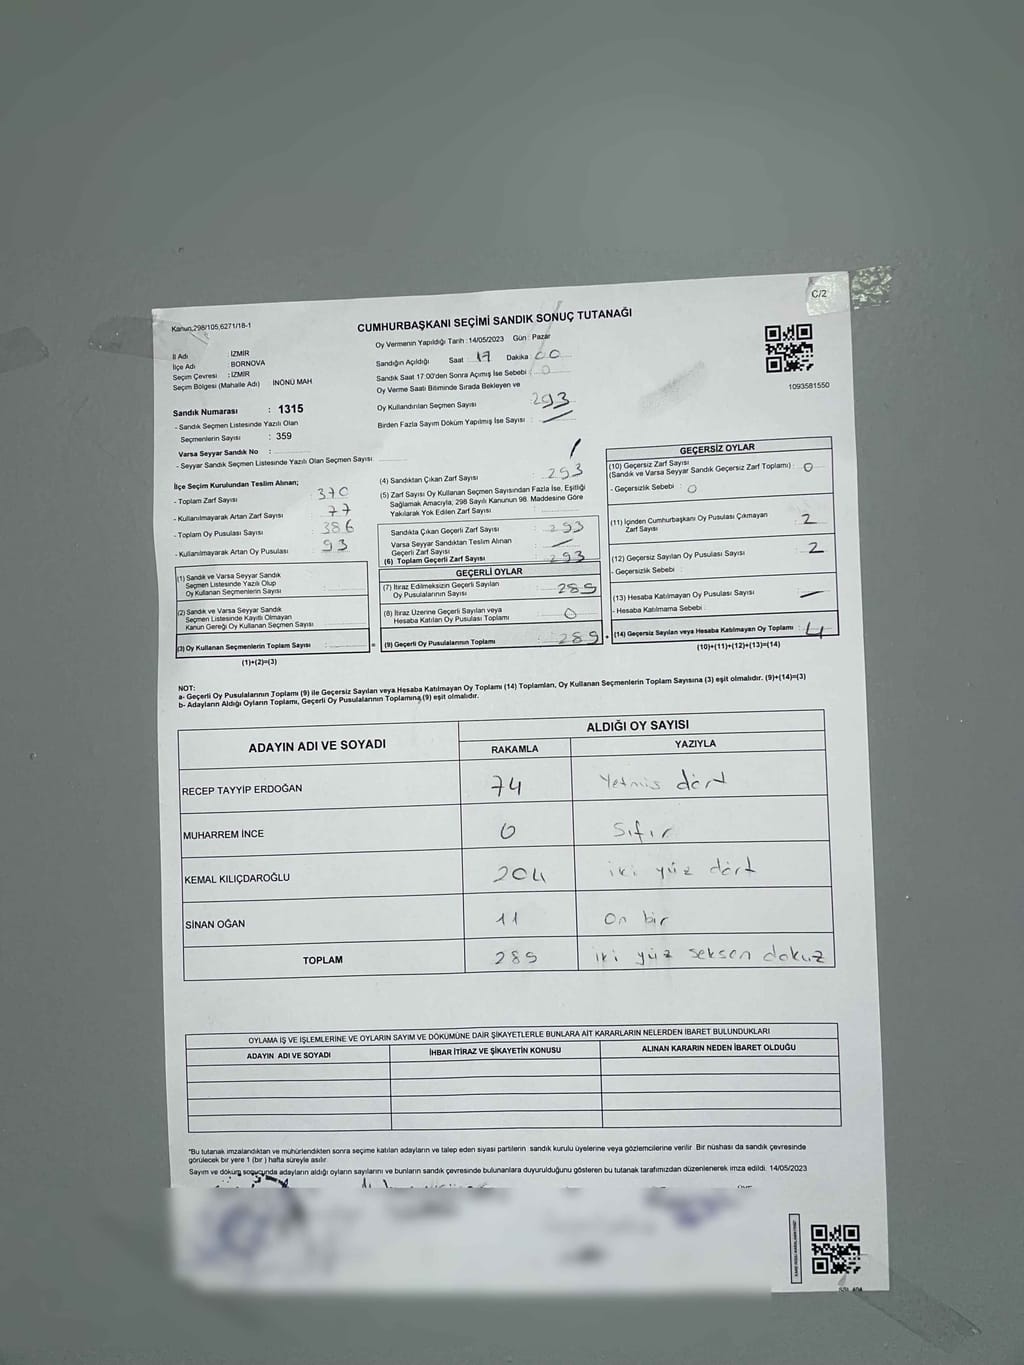 C/2
Kanun,298/105,6271/18-1
CUMHURBAŞKANI SEÇİMİ SANDIK SONUÇ TUTANAĞI
Oy Vermenin Yapıldığı Tarih :14/05/2023 Gün : Pazar
İl Adı : İZMİR
İlçe Adı : BORNOVA
Seçim Çevresi : İZMİR
Seçim Bölgesi (Mahalle Adı) İNÖNÜ MAH
Sandığın Açıldığı Saat 17 Dakika 00
Sandık Saat 17:00'den Sonra Açmış İse Sebebi : 0
Oy Verme Saati Bitiminde Sırada Bekleyen ve
Oy Kullandırılan Seçmen Sayısı : 293
Birden Fazla Sayım Döküm Yapılmış İse Sayısı :
1093581550
Sandık Numarası : 1315
- Sandık Seçmen Listesinde Yazılı Olan
Seçmenlerin Sayısı : 359
Varsa Seyyar Sandık No :
- Seyyar Sandık Seçmen Listesinde Yazılı Olan Seçmen Sayısı:
İlçe Seçim Kurulundan Teslim Alınan;
- Toplam Zarf Sayısı : 370
- Kullanılmayarak Artan Zarf Sayısı : 77
- Toplam Oy Pusulası Sayısı : 386
- Kullanılmayarak Artan Oy Pusulası : 93
(1) Sandık ve Varsa Seyyar Sandık
Seçmen Listesinde Yazılı Olup
Oy Kullanan Seçmenlerin Sayısı :
(2) Sandık ve Varsa Seyyar Sandık
Seçmen Listesinde Kayıtlı Olmayan
Kanun Gereği Oy Kullanan Seçmen Sayısı :
(3) Oy Kullanan Seçmenlerin Toplam Sayısı :
(1)+(2)=(3)
(4) Sandıktan Çıkan Zarf Sayısı : 293
(5) Zarf Sayısı Oy Kullanan Seçmen Sayısından Fazla İse, Eşitliği
Sağlamak Amacıyla; 298 Sayılı Kanunun 98. Maddesine Göre
Yakılarak Yok Edilen Zarf Sayısı :
Sandıkta Çıkan Geçerli Zarf Sayısı : 293
Varsa Seyyar Sandıktan Teslim Alınan
Geçerli Zarf Sayısı
(6) Toplam Geçerli Zarf Sayısı : 293
GEÇERLİ OYLAR
(7) İtiraz Edilmeksizin Geçerli Sayılan
Oy Pusulalarının Sayısı : 289
(8) İtiraz Üzerine Geçerli Sayılan veya
Hesaba Katılan Oy Pusulası Toplamı : 0
= (9) Geçerli Oy Pusulalarının Toplamı : 289 +
GEÇERSİZ OYLAR
(10) Geçersiz Zarf Sayısı
(Sandık ve Varsa Seyyar Sandık Geçersiz Zarf Toplamı) : 0
- Geçersizlik Sebebi : 0
(11) İçinden Cumhurbaşkanı Oy Pusulası Çıkmayan
Zarf Sayısı : 2
(12) Geçersiz Sayılan Oy Pusulası Sayısı : 2
- Geçersizlik Sebebi :
(13) Hesaba Katılmayan Oy Pusulası Sayısı :
- Hesaba Katılmama Sebebi :
(14) Geçersiz Sayılan veya Hesaba Katılmayan Oy Toplamı : 4
(10)+(11)+(12)+(13)=(14)
NOT:
a- Geçerli Oy Pusulalarının Toplamı (9) ile Geçersiz Sayılan veya Hesaba Katılmayan Oy Toplamı (14) Toplamları, Oy Kullanan Seçmenlerin Toplam Sayısına (3) eşit olmalıdır. (9)+(14)=(3)
b- Adayların Aldığı Oyların Toplamı, Geçerli Oy Pusulalarının Toplamına (9) eşit olmalıdır.
ADAYIN ADI VE SOYADI
ALDIĞI OY SAYISI
RAKAMLA YAZIYLA
RECEP TAYYİP ERDOĞAN 74 Yetmis dört
MUHARREM İNCE 0 Sıfır
KEMAL KILIÇDAROĞLU 204 iki yüz dört
SİNAN OĞAN 11 On bir
TOPLAM 289 iki yüz seksen dokuz
OYLAMA İŞ VE İŞLEMLERİNE VE OYLARIN SAYIM VE DÖKÜMÜNE DAİR ŞİKAYETLERLE BUNLARA AİT KARARLARIN NELERDEN İBARET BULUNDUKLARI
ADAYIN ADI VE SOYADI İHBAR İTİRAZ VE ŞİKAYETİN KONUSU ALINAN KARARIN NEDEN İBARET OLDUĞU
"Bu tutanak imzalandıktan ve mühürlendikten sonra seçime katılan adayların ve talep eden siyasi partilerin sandık kurulu üyelerine veya gözlemcilerine verilir. Bir nüshası da sandık çevresinde
görülecek bir yere 1 (bir) hafta süreyle asılır.
Sayım ve döküm sonucunda adayların aldığı oyların sayılarını ve bunların sandık çevresinde bulunanlara duyurulduğunu gösteren bu tutanak tarafımızdan düzenlenerek imza edildi. 14/05/2023